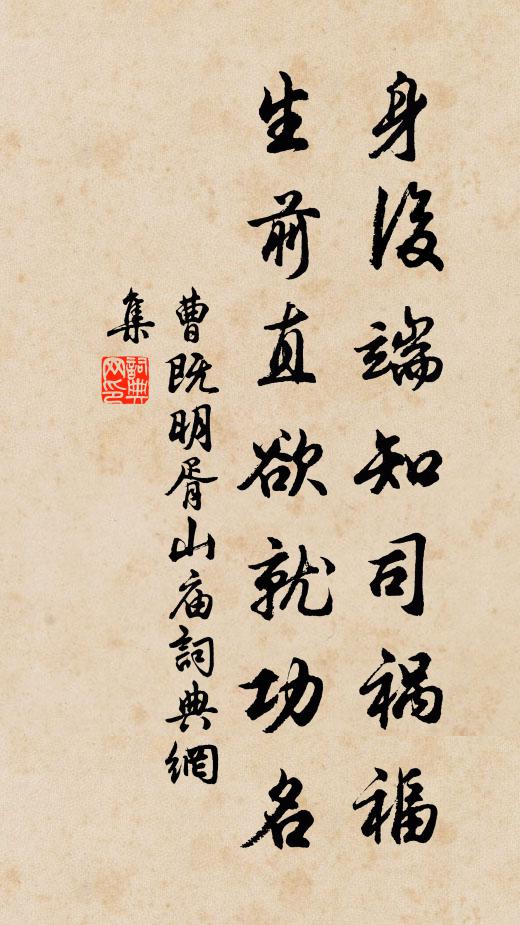 身後端知司禍福
生前直欲就功名
曹既明胥山庙詞典網
集
詞典网印